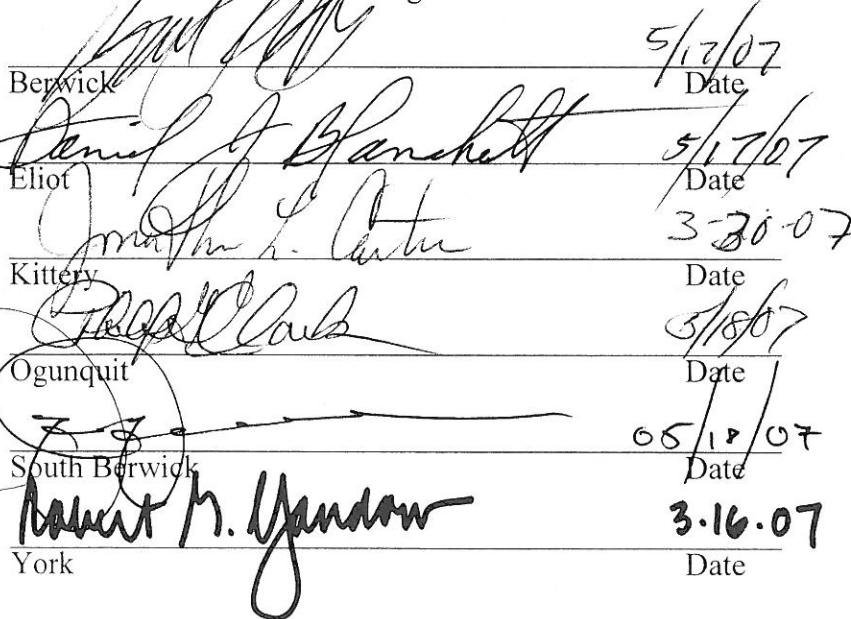 5/17/07
Berwick Date
Daniel J Blanchett 5/17/07
Eliot Date
Jonathan L. Carter 3-30-07
Kittery Date
Clark 5/18/07
Ogunquit Date
05/18/07
South Berwick Date
Robert M. Yandow 3.16.07
York Date